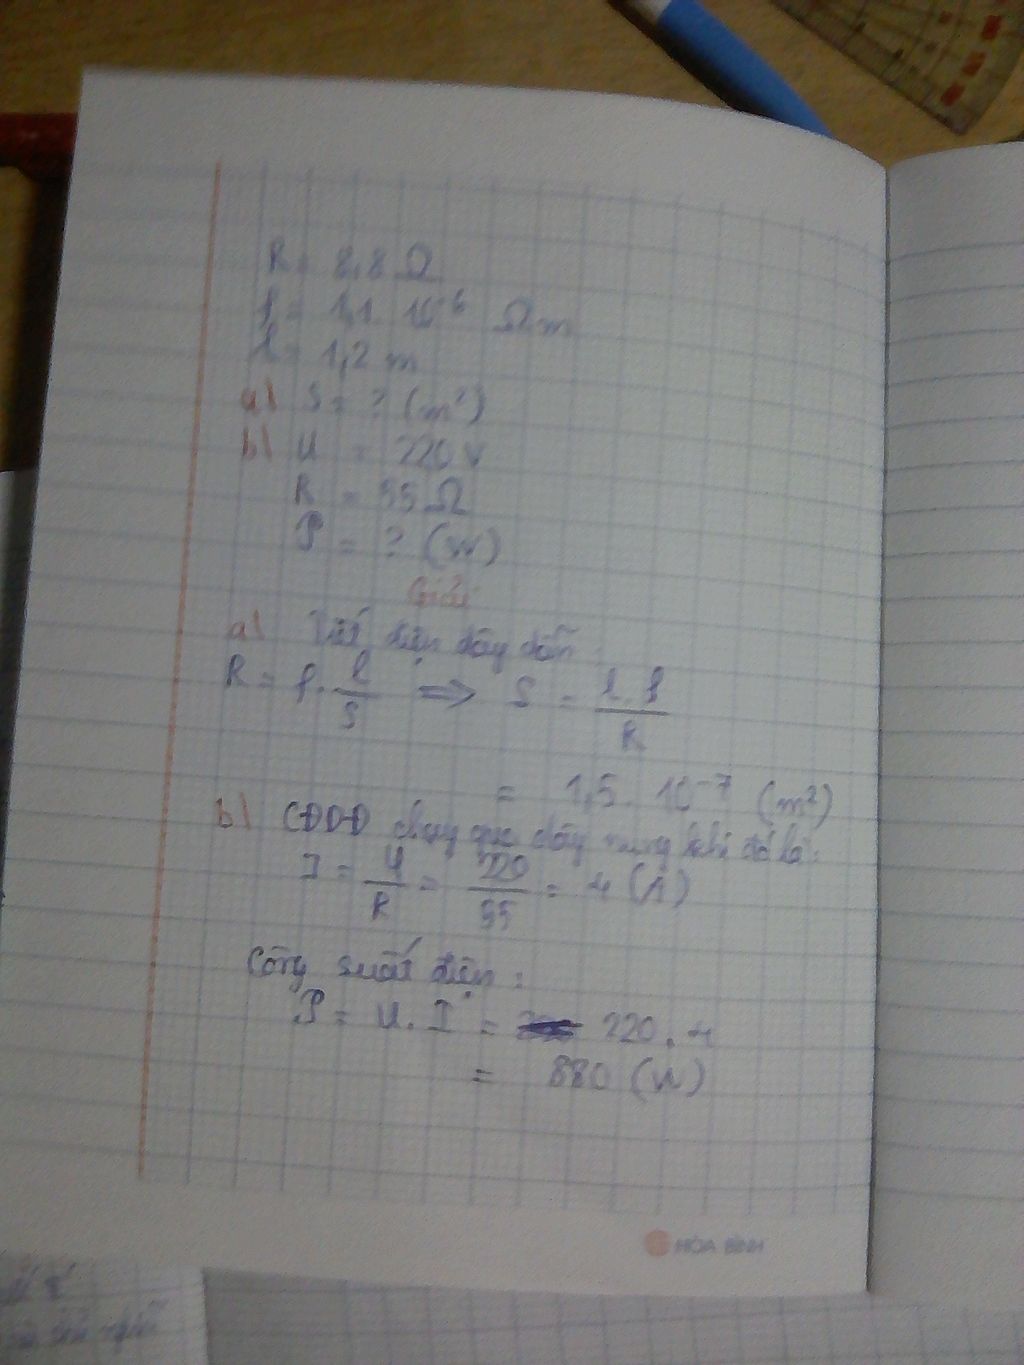 R = 8,8 Ω
ρ = 1,1 . 10⁻⁶ Ω.m
l = 1,2 m
a) S = ? (m²)
b) U = 220 V
R = 55 Ω
P = ? (W)
Giải
a) Tiết diện dây dẫn :
R = ρ . l/S ⇒ S = l . ρ/R
= 1,5 . 10⁻⁷ (m²)
b) CĐDĐ chạy qua dây nung khi đó là :
I = U/R = 220/55 = 4 (A)
Công suất điện :
P = U . I = 220 . 4
= 880 (W)
HÒA BÌNH